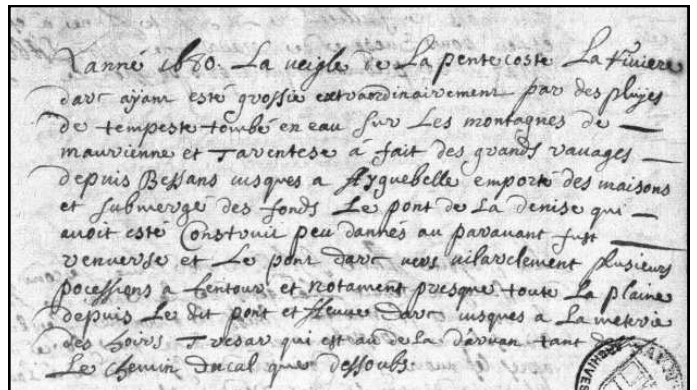 Lanné 1680. La veigle de La pentecoste La Riviere
darc ayant esté grossie extraordinairement par des pluyes
de tempeste tombé en eau sur Les montagnes de
maurienne et Tarentese à fait des grands ravages
depuis Bessans iusques a Ayguebelle emporté des maisons
et submerge des fonds Le pont de La denise qui
avoit esté Construit peu dannés au paravant fust
renverse et Le pont darc vers vilarclement plusieurs
pocessions a Lentour et notament presque toute La plaine
depuis Le dit pont et fleuve darc iusques a La meterie
des hoirs Tresar qui est au dela darvan tant
Le chemin ducal que dessoubs.
ARCHIVES